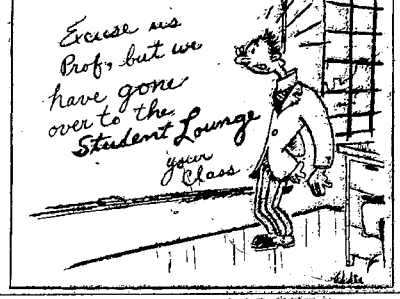 Excuse us
Prof, but we
have gone
over to the
Student Lounge
your
Class